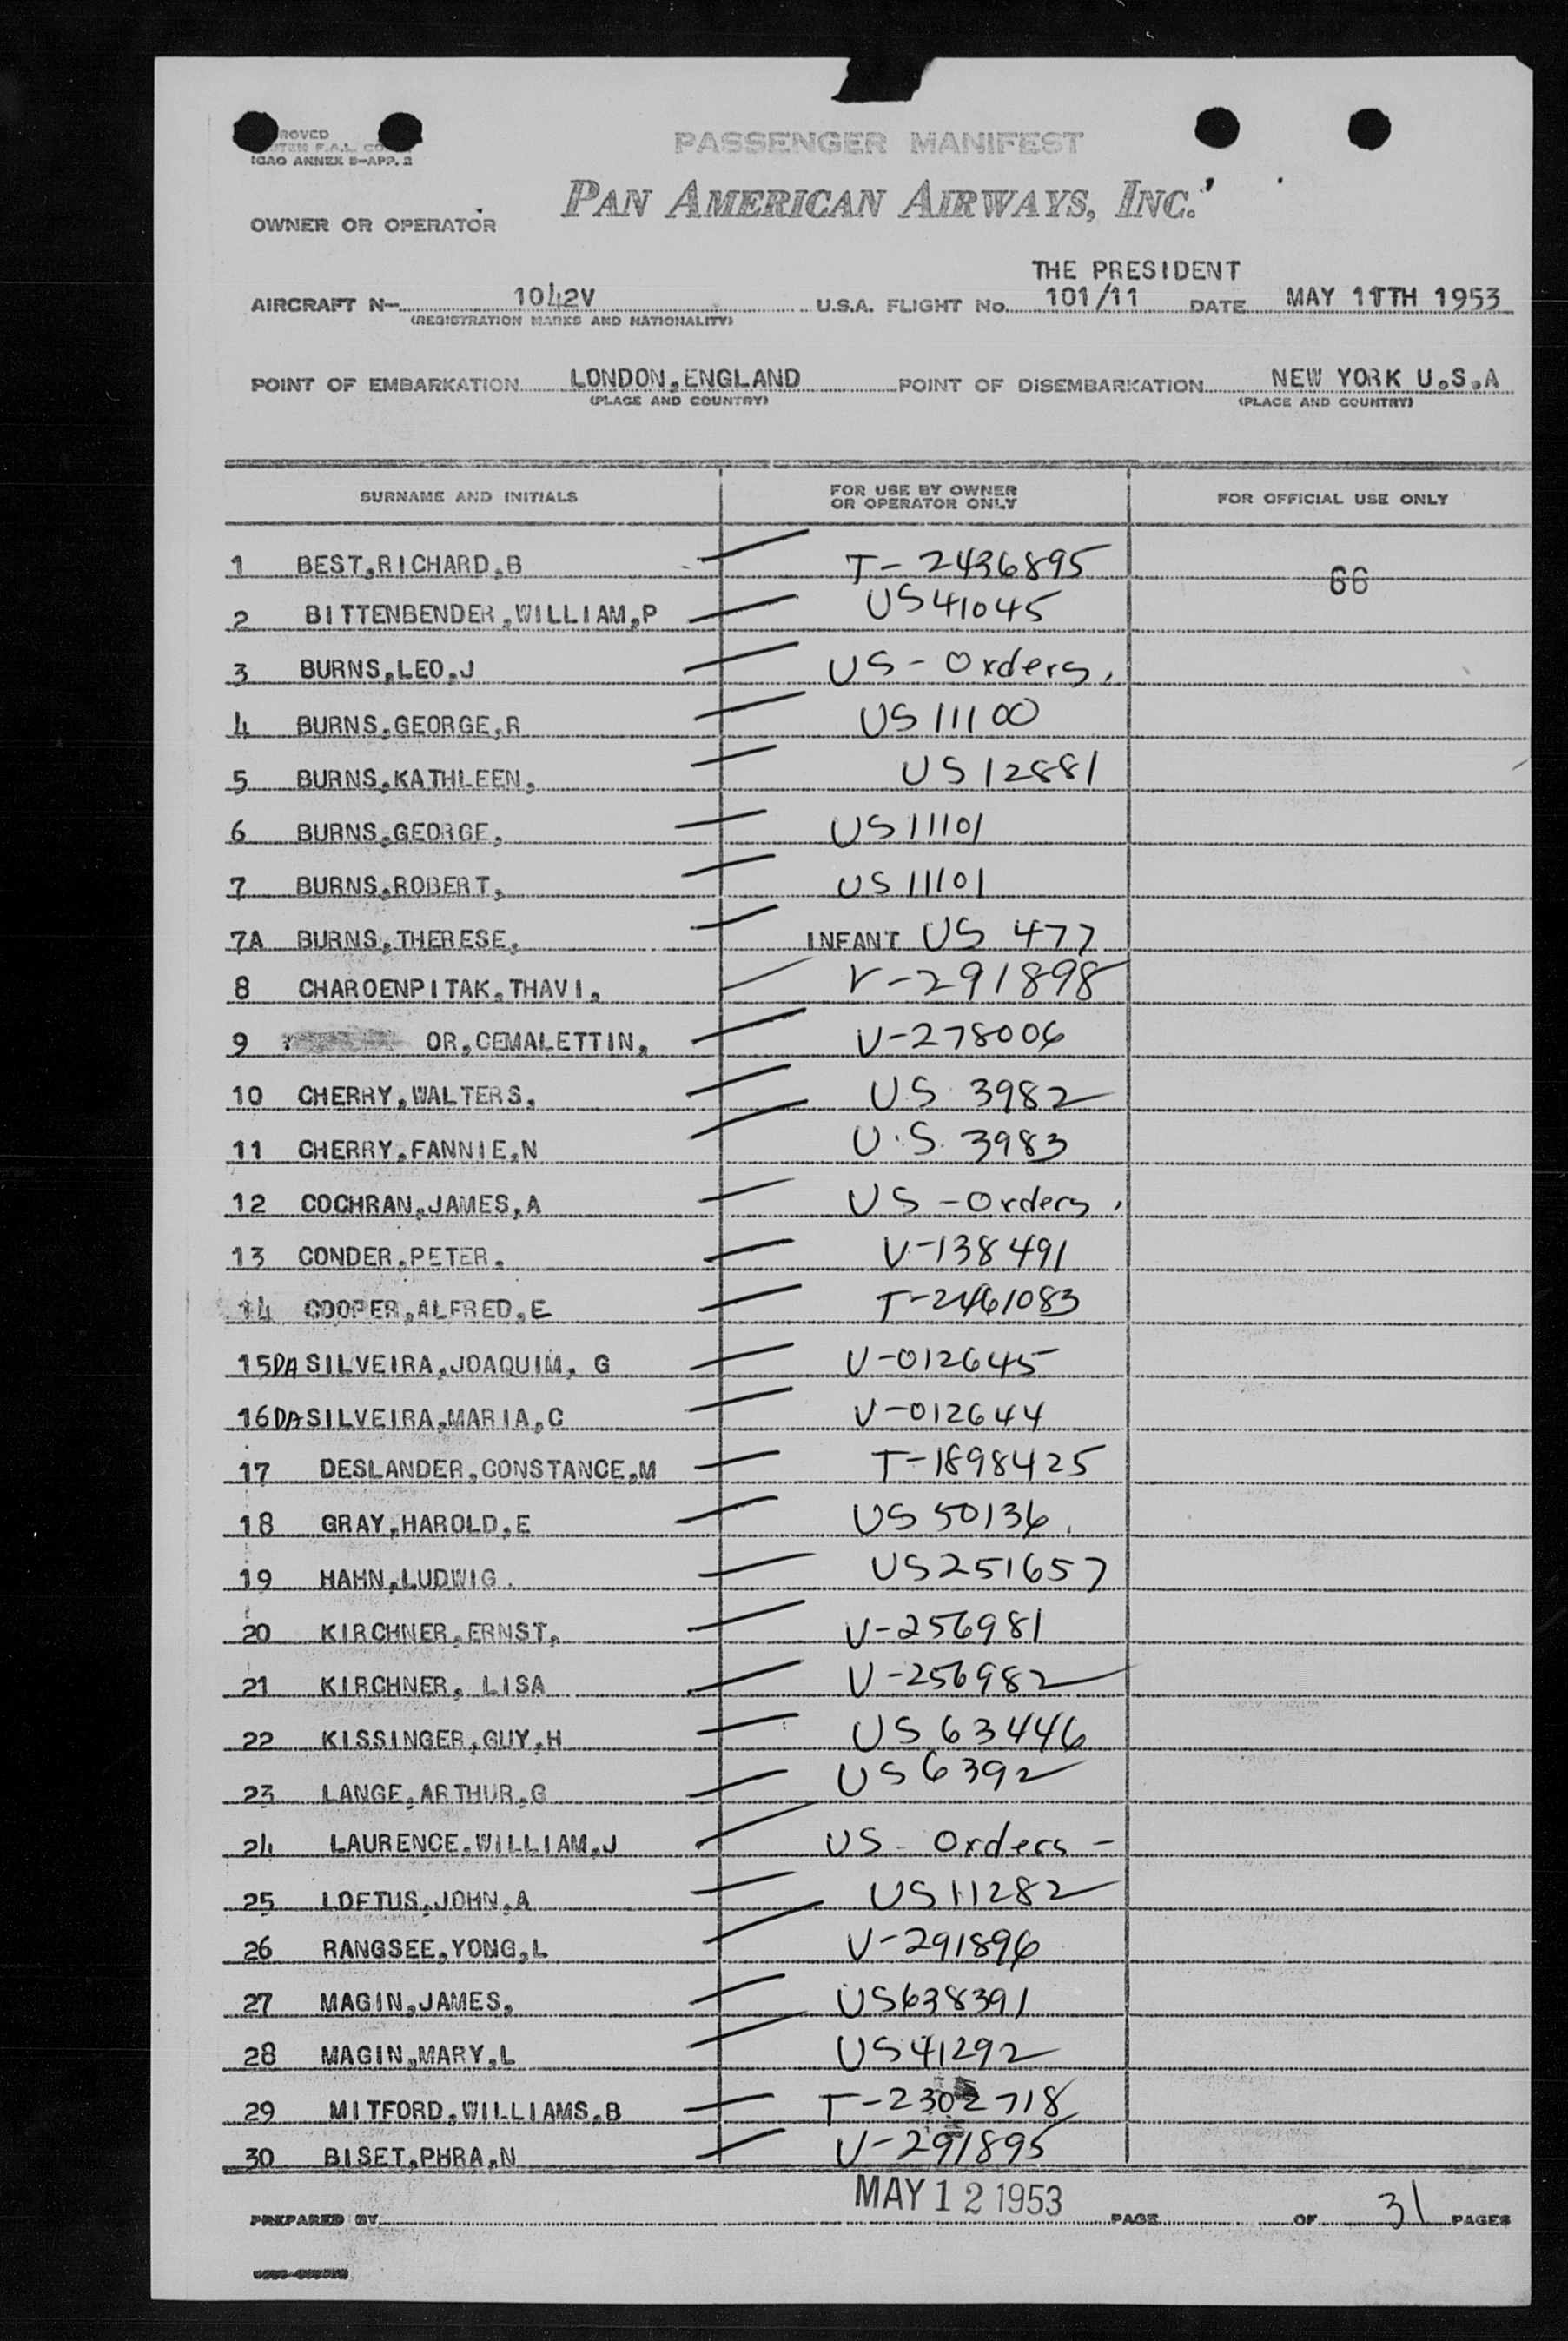 PASSENGER MANIFEST
ICAO ANNEX 9-APP. 2
PAN AMERICAN AIRWAYS, INC.
OWNER OR OPERATOR
THE PRESIDENT
AIRCRAFT N- 1042V U.S.A. FLIGHT No. 101/11 DATE MAY 11TH 1953
(REGISTRATION MARKS AND NATIONALITY)
POINT OF EMBARKATION LONDON,ENGLAND POINT OF DISEMBARKATION NEW YORK U.S.A
(PLACE AND COUNTRY) (PLACE AND COUNTRY)
SURNAME AND INITIALS FOR USE BY OWNER OR OPERATOR ONLY FOR OFFICIAL USE ONLY
1 BEST,RICHARD,B T-2436895 66
2 BITTENBENDER,WILLIAM,P US41045
3 BURNS,LEO,J US-Orders,
4 BURNS,GEORGE,R US11100
5 BURNS,KATHLEEN, US12881
6 BURNS,GEORGE, US11101
7 BURNS,ROBERT, US11101
7A BURNS,THERESE, INFANT US 477
8 CHAROENPITAK,THAVI, V-291898
9 OR,CEMALETTIN, V-278006
10 CHERRY,WALTERS, US 3982
11 CHERRY,FANNIE,N U.S. 3983
12 COCHRAN,JAMES,A US-Orders,
13 CONDER,PETER, V-138491
14 COOPER,ALFRED,E T-2461083
15 DA SILVEIRA,JOAQUIM, G V-012645
16 DA SILVEIRA,MARIA,C V-012644
17 DESLANDER,CONSTANCE,M T-1898425
18 GRAY,HAROLD,E US50136
19 HAHN,LUDWIG US251657
20 KIRCHNER,ERNST, V-256981
21 KIRCHNER, LISA V-256982
22 KISSINGER,GUY,H US63446
23 LANGE,ARTHUR,G US6392
24 LAURENCE,WILLIAM,J US-Orders-
25 LOFTUS,JOHN,A US11282
26 RANGSEE,YONG,L V-291896
27 MAGIN,JAMES, US638391
28 MAGIN,MARY,L US41292
29 MITFORD,WILLIAMS,B T-2302718
30 BISET,PHRA,N V-291895
MAY 12 1953
PREPARED BY PAGE OF 31 PAGES